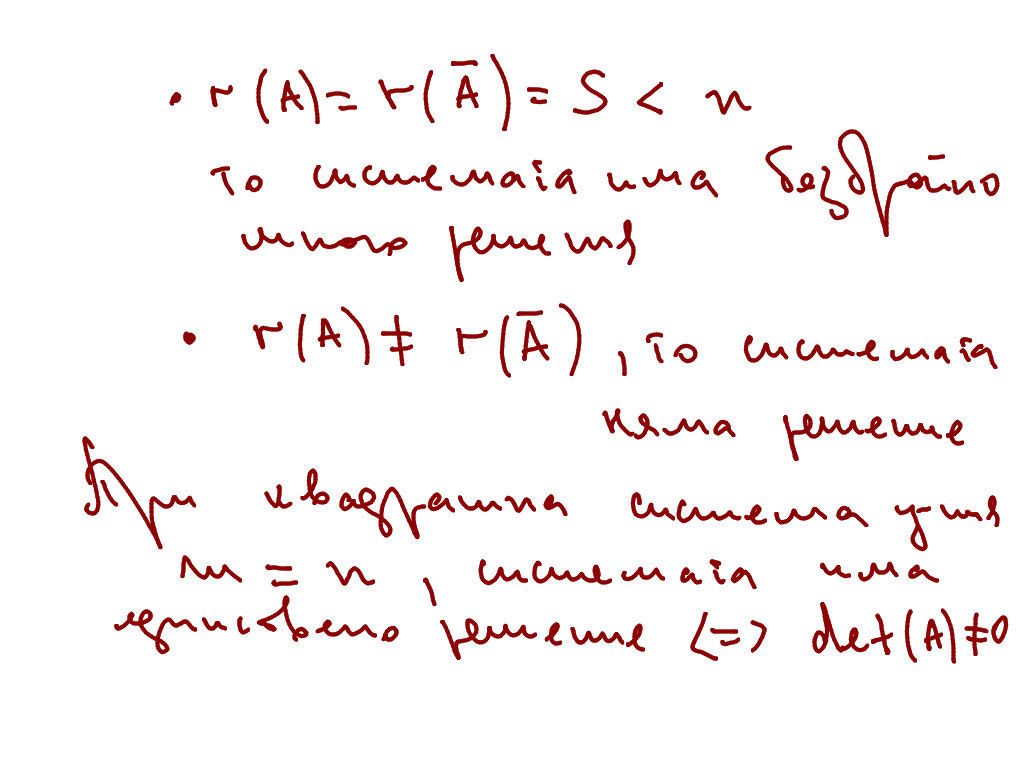 • r(A) = r(Ā) = S < n
то системата има безбройно
много решения
• r(A) ≠ r(Ā), то системата
няма решение
При квадратна система у-ния
m = n, системата има
единствено решение <=> det(A)≠0